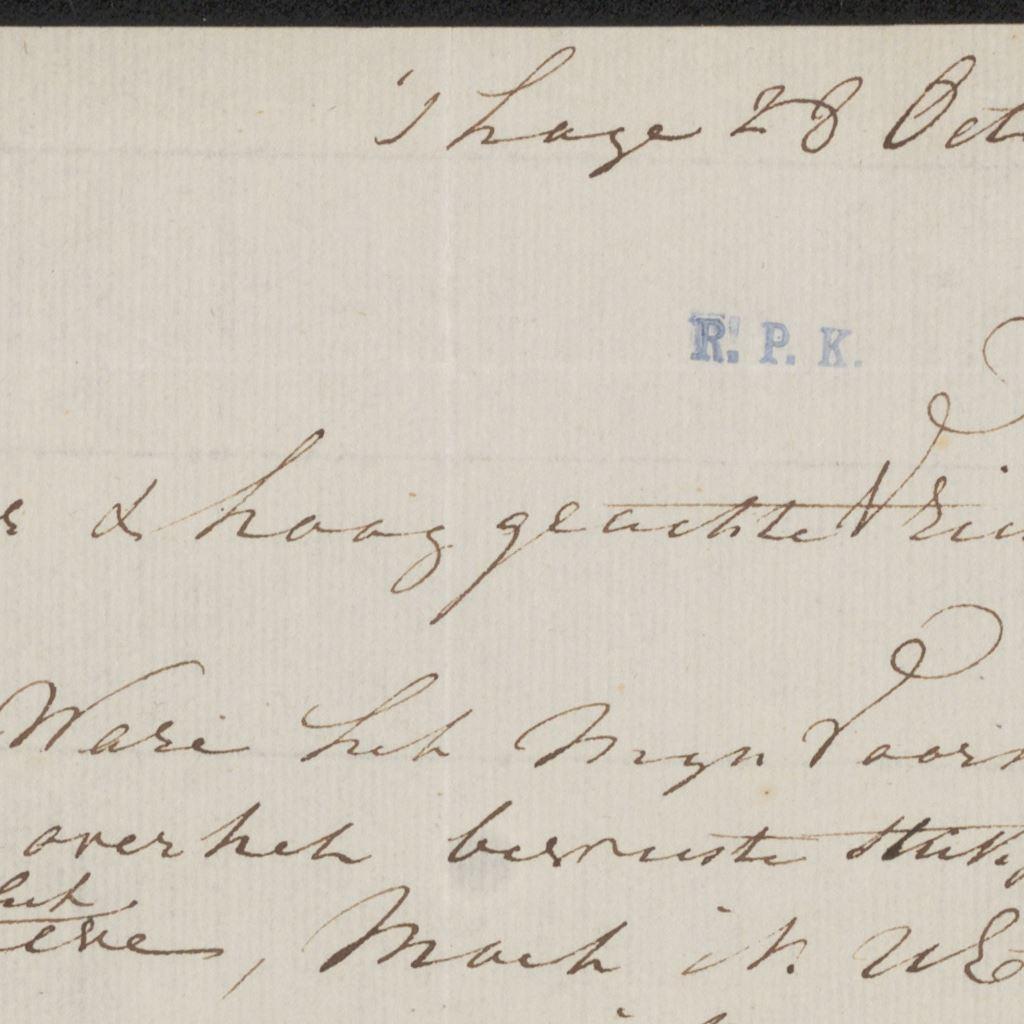 's hage 28 Oct
R. P. K.
& hoog geachte Vrien
Ware het Mijn Voorn
over het bewuste stukj
het
eere, Mocht ik UE